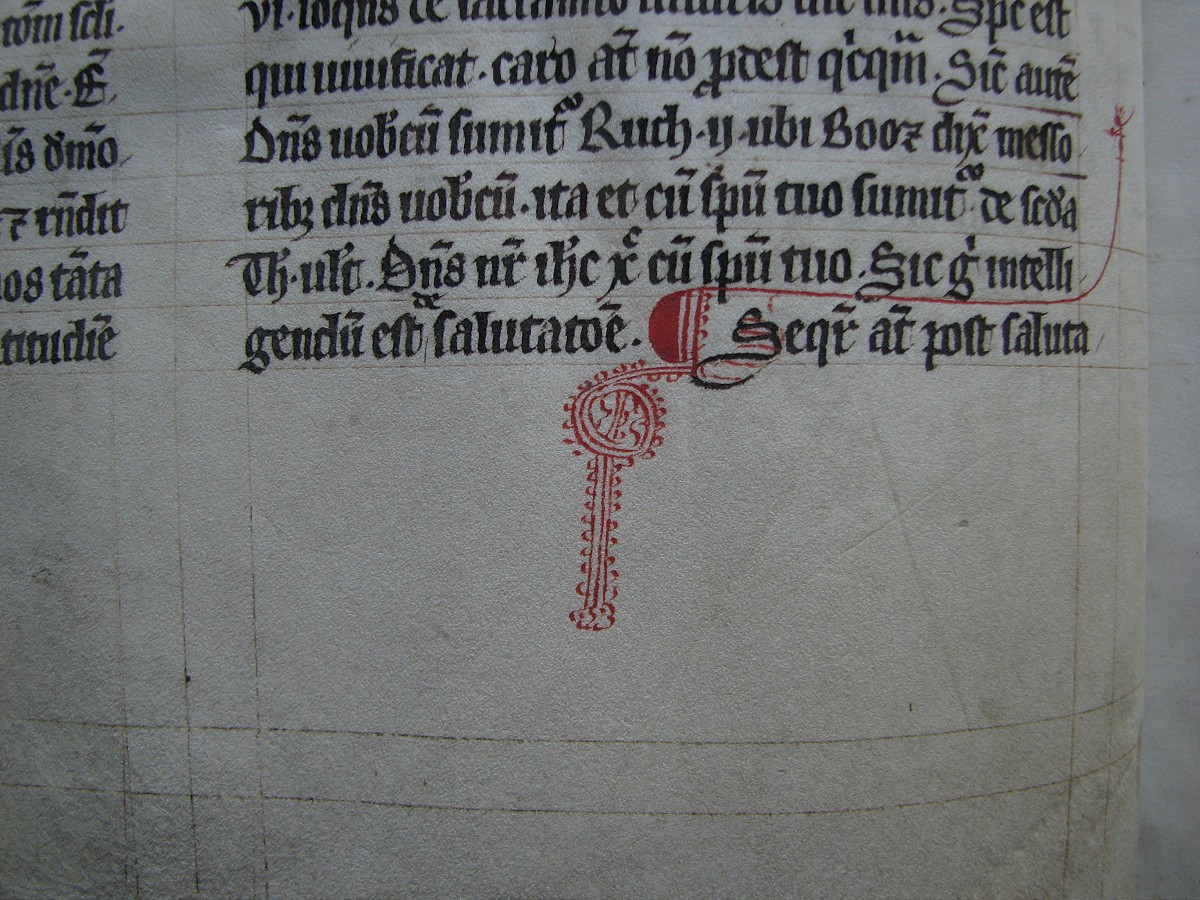 dñe · E
is dm̄o
⁊ rñdit
nos tāta
titudiē
vi · loqns de
Spc est
qui uiuificat · caro at̄ nō ꝓdest qͥcqm̄ . Sic̄ autē
Dñs uobcū sumit̄ Ruth · ij · ubi Booz dix̄ messo
ribꝫ dñs uobcū · ita et cū sp̄u tuo sumit̄ de scd̾a
Th · ult̄ . Dñs nr̄ ihc xͨ cū sp̄u tuo . Sic gͥ intelli
gendū est de salutatōe . Seqr̄ at̄ post saluta